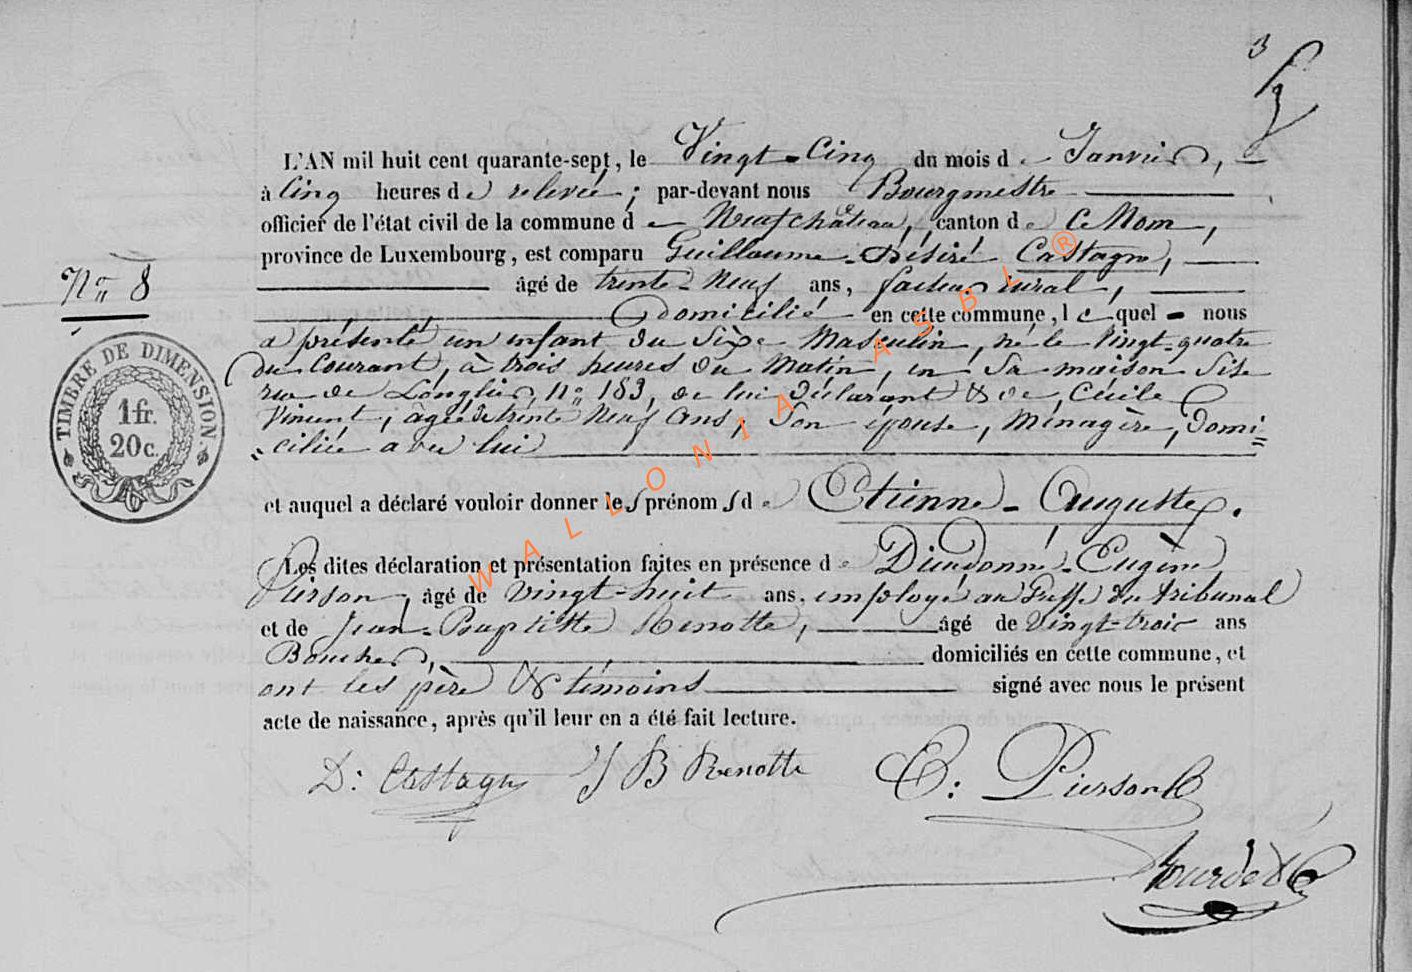 3
L'AN mil huit cent quarante-sept, le Vingt-Cinq du mois de Janvier,
à Cinq heures de relevée; par-devant nous Bourgmestre
officier de l'état civil de la commune de Neufchâteau, canton de Ce Nom,
province de Luxembourg, est comparu Guillaume-Désiré Castagne,
âgé de trente-Neuf ans, facteur rural,
Domicilié en cette commune, lequel nous
N° 8
a présenté un enfant du Sèxe Masculin, né le Vingt-quatre
du Courant, à trois heures du Matin, en Sa maison Sise
rue de Longlier, n° 183, de lui Déclarant & de Cécile
Vincent, âgée de trente Neuf ans, Son épouse, Ménagère, Domi=
ciliée avec lui
TIMBRE DE DIMENSION
1 fr.
20 c.
et auquel a déclaré vouloir donner les prénoms de Etienne-Auguste.
Les dites déclaration et présentation faites en présence de Dieudonné-Eugène
Pierson, âgé de Vingt-huit ans, employé au Greffe du tribunal
et de Jean-Baptiste Renotte, âgé de Vingt-trois ans
Boucher, domiciliés en cette commune, et
ont les père & témoins signé avec nous le présent
acte de naissance, après qu'il leur en a été fait lecture.
D: Castagne J B Renotte E: Pierson
WALLONIA ASBL ®